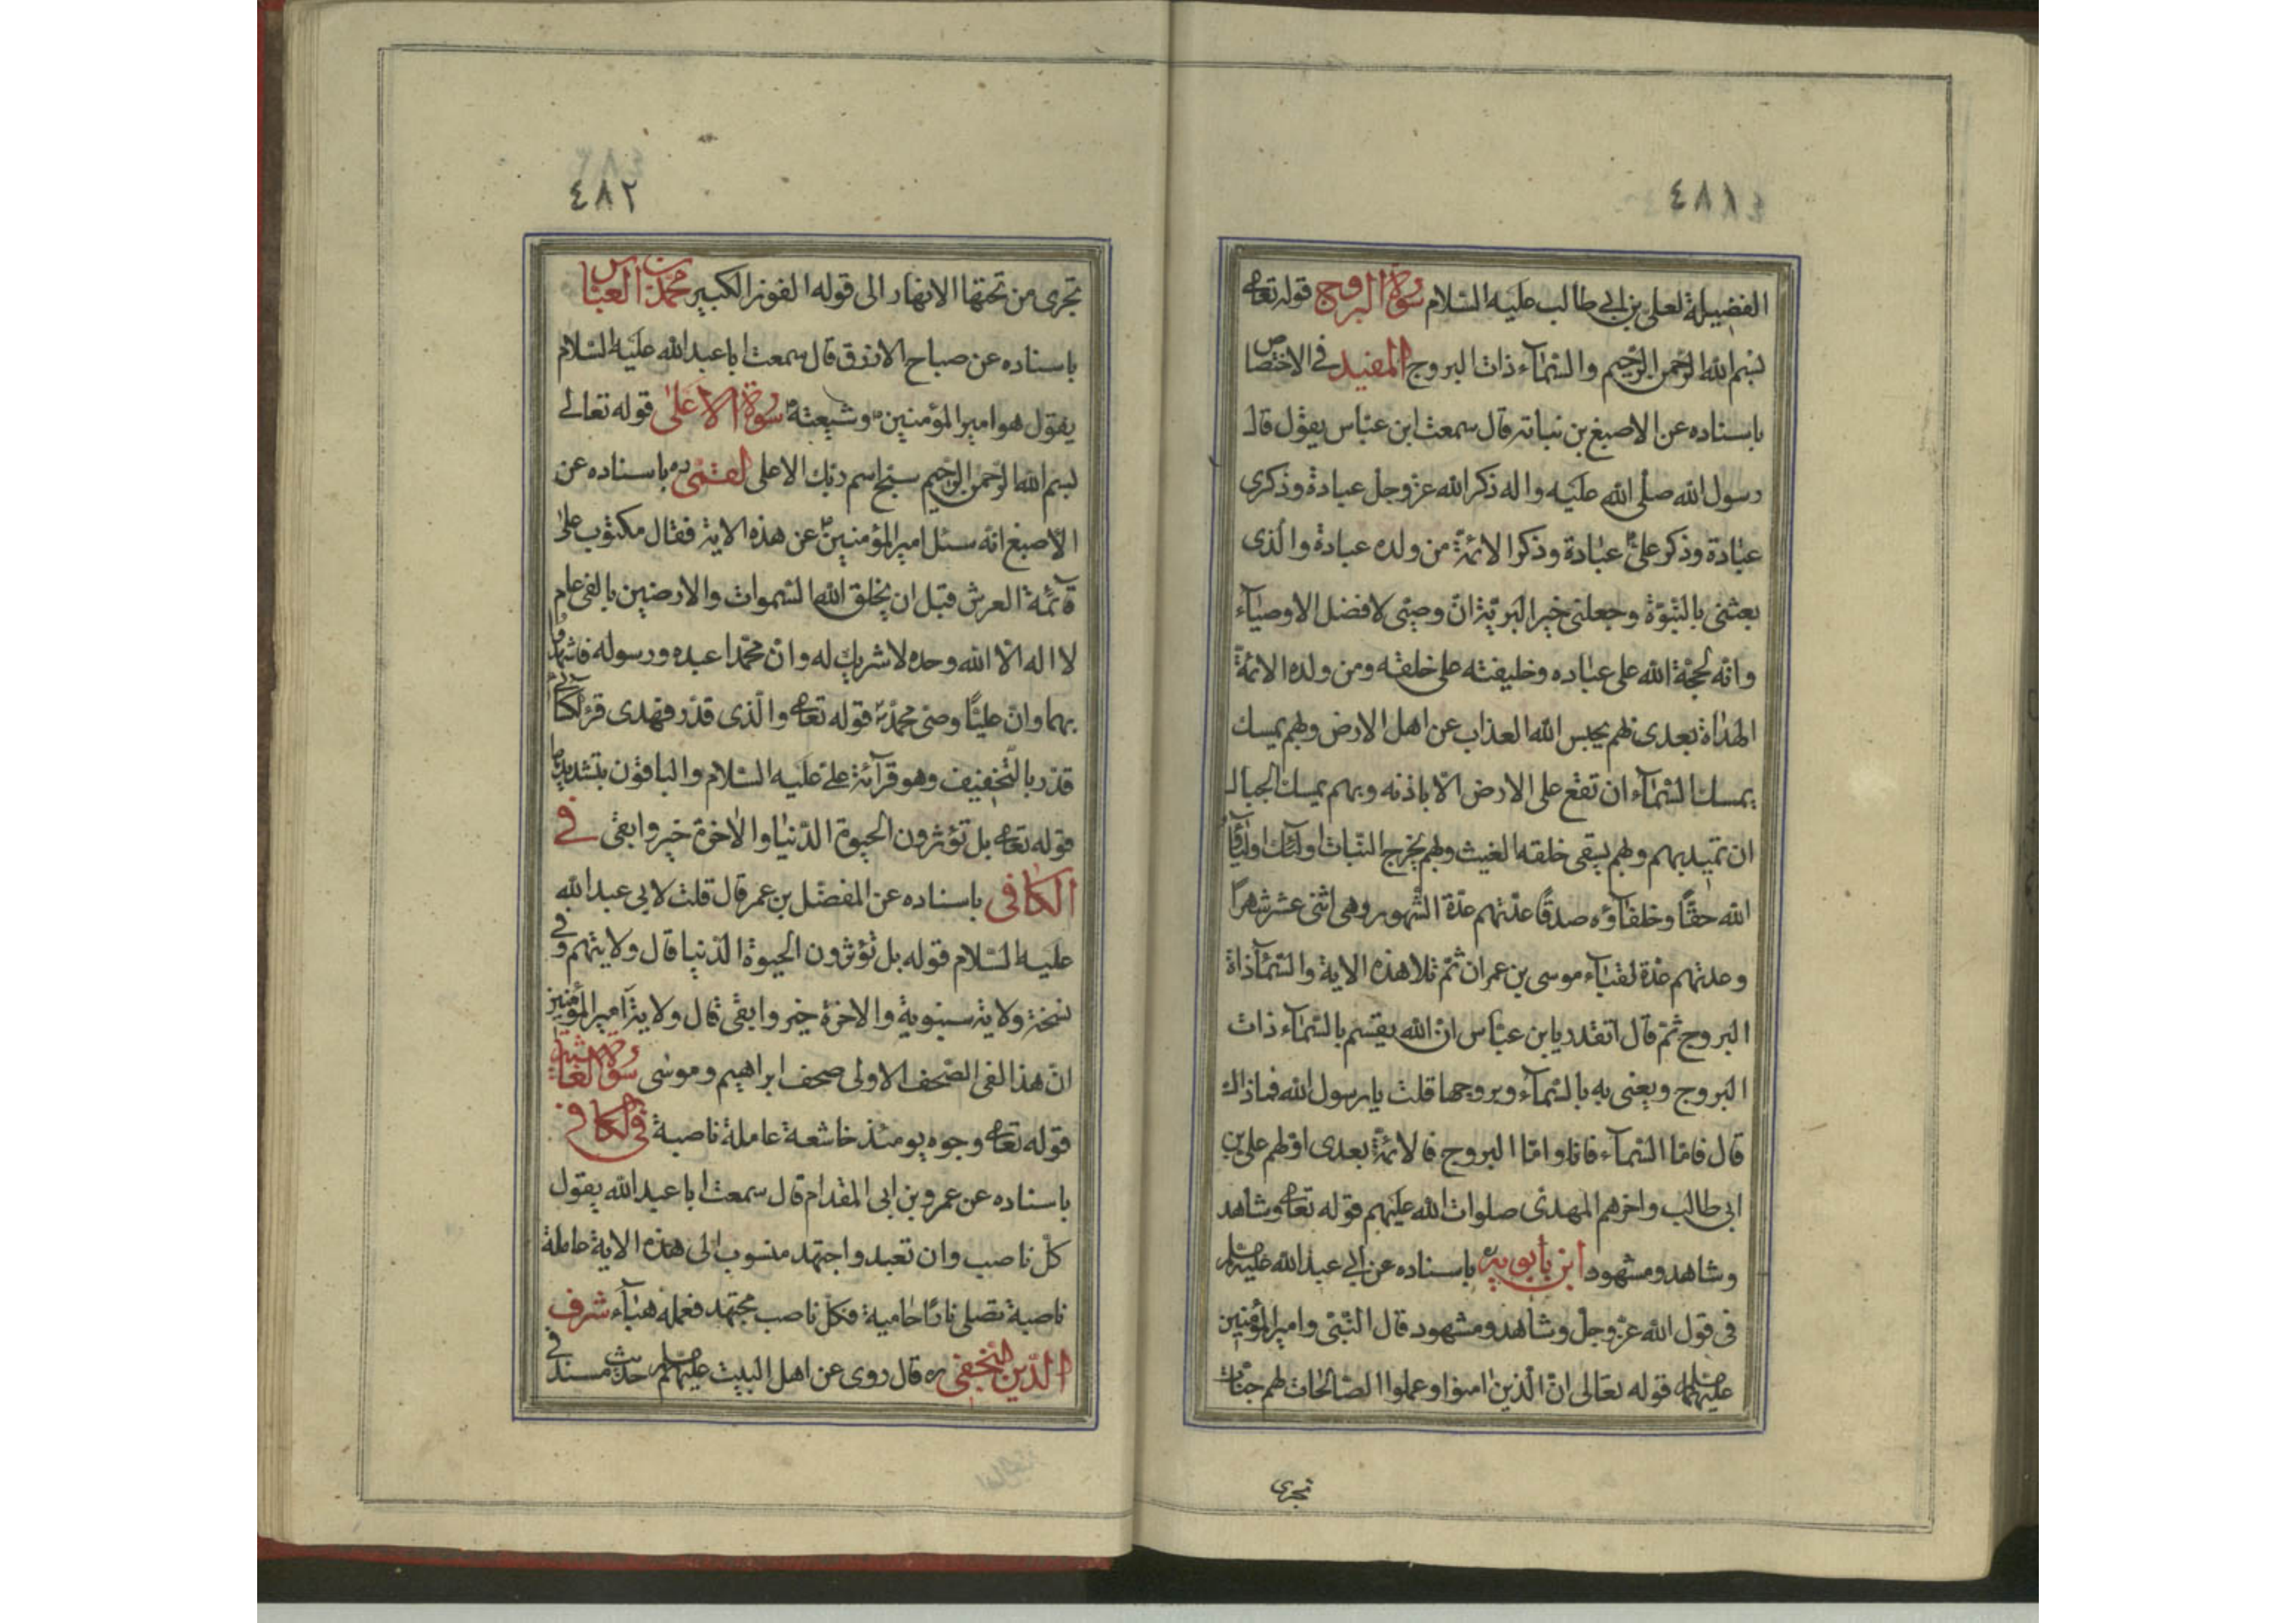 ٤٨١
الفضيلة لعلى بن ابي طالب عليه السّلام سورة البروج قوله تعالى
بسم الله الرّحمن الرّحيم والسّمآء ذات البروج المفيد فى الاختصاص
باسناده عن الاصبغ بن نباتة قال سمعت ابن عبّاس يقول قال
رسول الله صلّى الله عليه واله ذكر الله عزّوجلّ عبادة وذكرى
عبادة وذكر علىّ عبادة وذكر الائمّة من ولده عبادة والّذى
بعثنى بالنّبوّة وجعلنى خير البريّة انّ وصيّى لافضل الاوصيآء
وانّه لحجّة الله على عباده وخليفته على خلقه ومن ولده الائمّة
الهداة بعدى بهم يحبس الله العذاب عن اهل الارض وبهم يمسك
يمسك السّمآء ان تقع على الارض الّا باذنه وبهم يمسك الجبال
ان تميد بهم وبهم يسقى خلقه الغيث وبهم يخرج النّبات اولئك اوليآء
الله حقّا وخلفآؤه صدقا عدّتهم عدّة الشّهور وهى اثنى عشر شهرا
وعدتهم عدّة نقبآء موسى بن عمران ثمّ تلا هذه الاية والسّمآء ذاة
البروج ثمّ قال اتقدر يابن عبّاس انّ الله يقسم بالسّمآء ذات
البروج ويعنى به بالسّمآء وبروجها قلت يا رسول الله فما ذاك
قال فامّا السّمآء فانا وامّا البروج فالائمّة بعدى اوّلهم على بن
ابى طالب واخرهم المهدى صلوات الله عليهم قوله تعالى وشاهد
وشاهد ومشهود ابن بابويه ره باسناده عن ابي عبد الله عليه السلام
فى قول الله عزّوجلّ وشاهد ومشهود قال النّبىّ وامير المؤمنين
عليهما السلام قوله تعالى انّ الّذين امنوا وعملوا الصّالحات لهم جنّات
تجرى
٤٨٢
تجرى من تحتها الانهار الى قوله الفوز الكبير محمّد بن العبّاس
باسناده عن صباح الازرق قال سمعت ابا عبد الله عليه السّلام
يقول هو امير المؤمنين وشيعته سورة الاعلى قوله تعالى
بسم الله الرّحمن الرّحيم سبّح اسم ربّك الاعلى القمّى ره باسناده عن
الاصبغ انّه سئل امير المؤمنين عن هذه الاية فقال مكتوب على
قآئمة العرش قبل ان يخلق الله السّموات والارضين بالفى عام
لا اله الّا الله وحده لا شريك له وانّ محمّدا عبده ورسوله فاشهدوا
بهما وانّ عليّا وصىّ محمّد قوله تعالى والّذى قدّر فهدى قرء الكسائى
قدر بالتّخفيف وهو قرآئة علىّ عليه السّلام والباقون بتشديدها
قوله تعالى بل تؤثرون الحيوة الدّنيا والاخرة خير وابقى فى
الكافى باسناده عن المفضّل بن عمر قال قلت لابى عبد الله
عليه السّلام قوله بل تؤثرون الحيوة الدّنيا قال ولايتهم وفى
نسخة ولاية سنبوية والاخرة خير وابقى قال ولاية امير المؤمنين
انّ هذا لفى الصّحف الاولى صحف ابراهيم وموسى سورة الغاشية
قوله تعالى وجوه يومئذ خاشعة عاملة ناصبة فى الكافى
باسناده عن عمرو بن ابى المقدام قال سمعت ابا عبد الله يقول
كلّ ناصب وان تعبد واجتهد منسوب الى هذه الاية عاملة
ناصبة تصلى نارا حامية فكلّ ناصب مجتهد فعمله هبآء شرف
الدّين النّجفى ره قال روى عن اهل البيت عليهم السلام حديث مسند فى